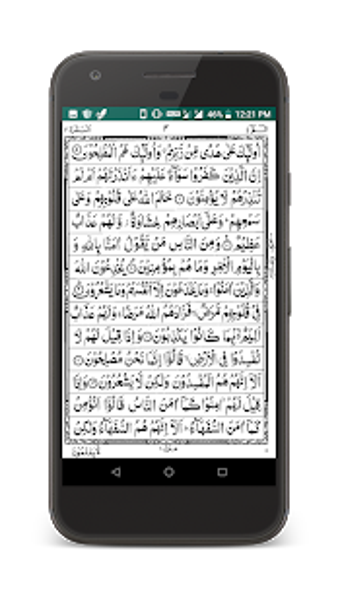 46% 12:21 PM
البقرة ٢ ٣ الم
اُولٰٓئِكَ عَلٰى هُدًى مِّنْ رَّبِّهِمْ وَاُولٰٓئِكَ هُمُ الْمُفْلِحُوْنَ
اِنَّ الَّذِيْنَ كَفَرُوْا سَوَآءٌ عَلَيْهِمْ ءَاَنْذَرْتَهُمْ اَمْ لَمْ
تُنْذِرْهُمْ لَا يُؤْمِنُوْنَ خَتَمَ اللهُ عَلٰى قُلُوْبِهِمْ وَعَلٰى
سَمْعِهِمْ وَعَلٰٓى اَبْصَارِهِمْ غِشَاوَةٌ وَّلَهُمْ عَذَابٌ
عَظِيْمٌ وَمِنَ النَّاسِ مَنْ يَّقُوْلُ اٰمَنَّا بِاللهِ وَ
بِالْيَوْمِ الْاٰخِرِ وَمَا هُمْ بِمُؤْمِنِيْنَ يُخٰدِعُوْنَ اللهَ
وَالَّذِيْنَ اٰمَنُوْا وَمَا يَخْدَعُوْنَ اِلَّآ اَنْفُسَهُمْ وَمَا يَشْعُرُوْنَ
فِيْ قُلُوْبِهِمْ مَّرَضٌ فَزَادَهُمُ اللهُ مَرَضًا وَلَهُمْ عَذَابٌ
اَلِيْمٌ بِمَا كَانُوْا يَكْذِبُوْنَ وَاِذَا قِيْلَ لَهُمْ لَا
تُفْسِدُوْا فِى الْاَرْضِ قَالُوْٓا اِنَّمَا نَحْنُ مُصْلِحُوْنَ
اَلَآ اِنَّهُمْ هُمُ الْمُفْسِدُوْنَ وَلٰكِنْ لَّا يَشْعُرُوْنَ وَاِذَا
قِيْلَ لَهُمْ اٰمِنُوْا كَمَآ اٰمَنَ النَّاسُ قَالُوْٓا اَنُؤْمِنُ
كَمَآ اٰمَنَ السُّفَهَآءُ اَلَآ اِنَّهُمْ هُمُ السُّفَهَآءُ وَلٰكِنْ
لَّا يَعْلَمُوْنَ